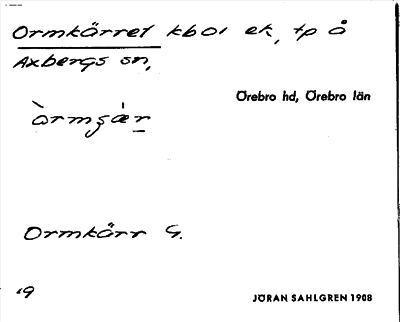 Ormkärret kbol ek, tp å
Axbergs sn,
Örebro hd, Örebro län
Ormkärr G.
JÖRAN SAHLGREN 1908